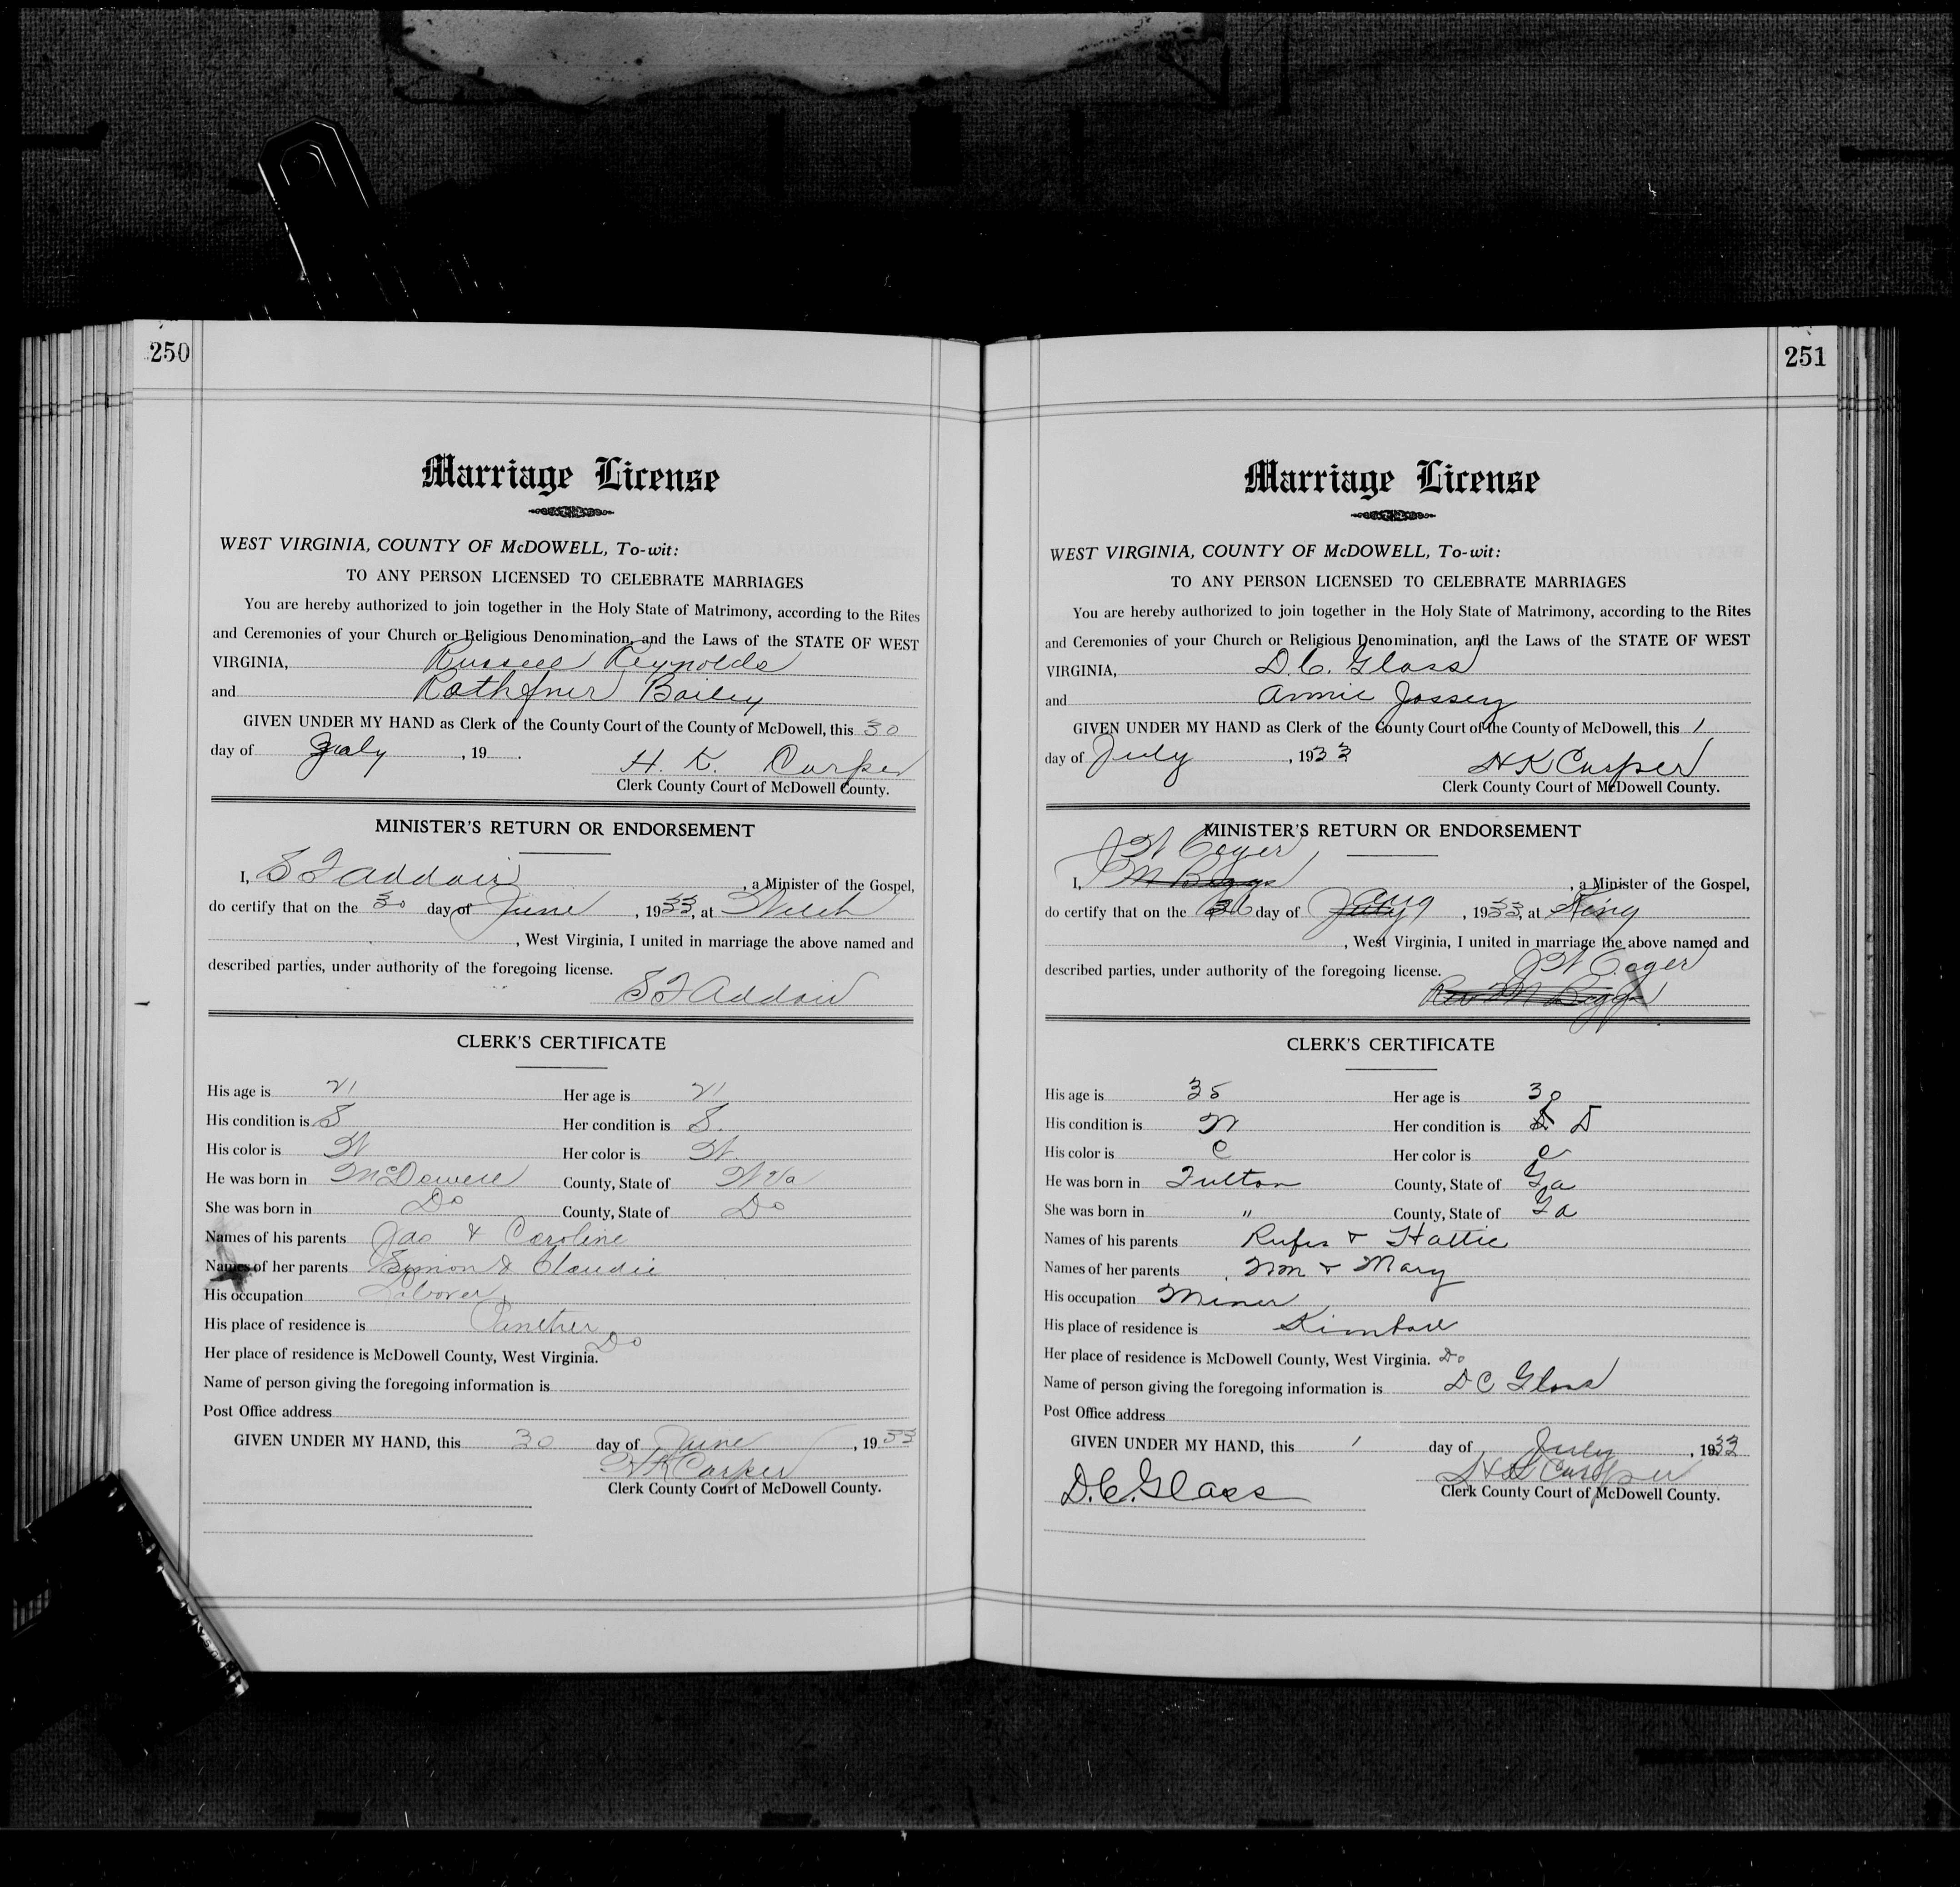 250
Marriage License
WEST VIRGINIA, COUNTY OF McDOWELL, To-wit:
TO ANY PERSON LICENSED TO CELEBRATE MARRIAGES
You are hereby authorized to join together in the Holy State of Matrimony, according to the Rites
and Ceremonies of your Church or Religious Denomination, and the Laws of the STATE OF WEST
VIRGINIA, Russell Reynolds
and Bailey
GIVEN UNDER MY HAND as Clerk of the County Court of the County of McDowell, this 30
day of July, 19 . H. K. Carper
Clerk County Court of McDowell County.
MINISTER'S RETURN OR ENDORSEMENT
I, S F Addair, a Minister of the Gospel,
do certify that on the 30 day of June, 1933, at Welch
, West Virginia, I united in marriage the above named and
described parties, under authority of the foregoing license.
S F Addair
CLERK'S CERTIFICATE
His age is 21 Her age is 21
His condition is S Her condition is S.
His color is W Her color is W.
He was born in McDowell County, State of W Va
She was born in Do County, State of Do
Names of his parents Jas & Caroline
Names of her parents Simon & Claudie
His occupation Laborer
His place of residence is Panther
Her place of residence is McDowell County, West Virginia. Do
Name of person giving the foregoing information is
Post Office address
GIVEN UNDER MY HAND, this 30 day of June, 1933
H K Carper
Clerk County Court of McDowell County.
251
Marriage License
WEST VIRGINIA, COUNTY OF McDOWELL, To-wit:
TO ANY PERSON LICENSED TO CELEBRATE MARRIAGES
You are hereby authorized to join together in the Holy State of Matrimony, according to the Rites
and Ceremonies of your Church or Religious Denomination, and the Laws of the STATE OF WEST
VIRGINIA, D. C. Glass
and Annie Jossey
GIVEN UNDER MY HAND as Clerk of the County Court of the County of McDowell, this 1
day of July, 1933 H K Carper
Clerk County Court of McDowell County.
MINISTER'S RETURN OR ENDORSEMENT
J W
I, M Biggs, a Minister of the Gospel,
do certify that on the day of July Aug, 1933, at King
, West Virginia, I united in marriage the above named and
described parties, under authority of the foregoing license.
J W
Rev M Biggs
CLERK'S CERTIFICATE
His age is 35 Her age is 30
His condition is W Her condition is D
His color is C Her color is C
He was born in Fulton County, State of Ga
She was born in " County, State of Ga
Names of his parents Rufus & Hattie
Names of her parents Wm & Mary
His occupation Miner
His place of residence is Kimball
Her place of residence is McDowell County, West Virginia. Do
Name of person giving the foregoing information is D C Glass
Post Office address
GIVEN UNDER MY HAND, this 1 day of July, 1933
H K Carper
Clerk County Court of McDowell County.
D. C. Glass